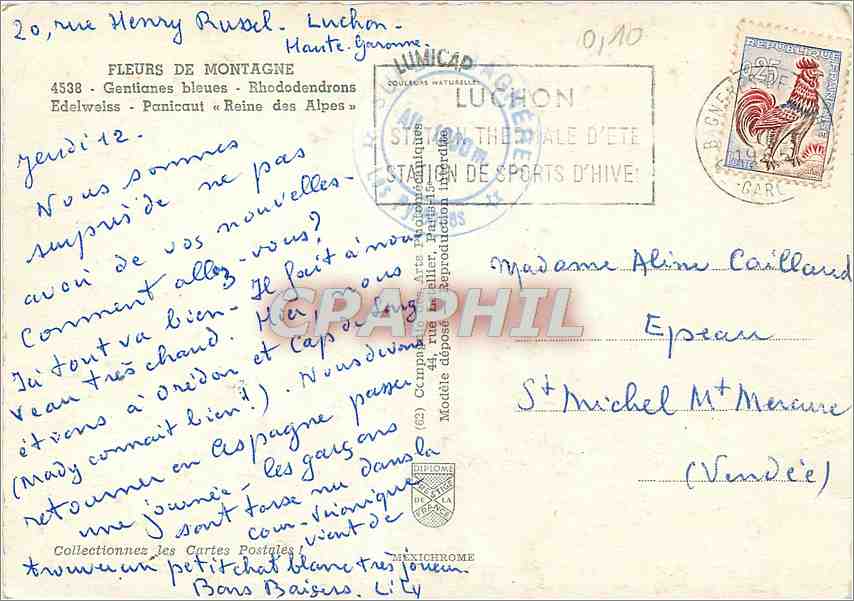 20, rue Henry Russel. Luchon.
Haute-Garonne.
0,10
FLEURS DE MONTAGNE
4538 - Gentianes bleues - Rhododendrons
Edelweiss - Panicaut « Reine des Alpes »
LUMICAP
COULEURS NATURELLES
LUCHON
STATION THERMALE D'ÉTÉ
STATION DE SPORTS D'HIVER
REPUBLIQUE FRANÇAISE
GARE
Jeudi 12.
Nous sommes
surpris de ne pas
avoir de vos nouvelles -
Comment allez-vous?
Ici tout va bien - Il fait à nou
veau très chaud. Hier, nous
étions à Orédon et Cap de Long
(Mady connait bien!). Nous devons
retourner en Espagne passer
une journée - les garçons
sont torse nu dans la
cour - Véronique
vient de
trouver un petit chat blanc très joueur.
Bons Baisers. Lily
Collectionnez les Cartes Postales !
(62) Compagnie des Arts Photomécaniques
44, rue Letellier, Paris-15e
Modèle déposé. Reproduction interdite
DIPLOME
PRESTIGE
DE LA
FRANCE
MEXICHROME
Madame Aline Caillaud
Epeau
St Michel Mt Mercure
(Vendée)
CPAPHIL